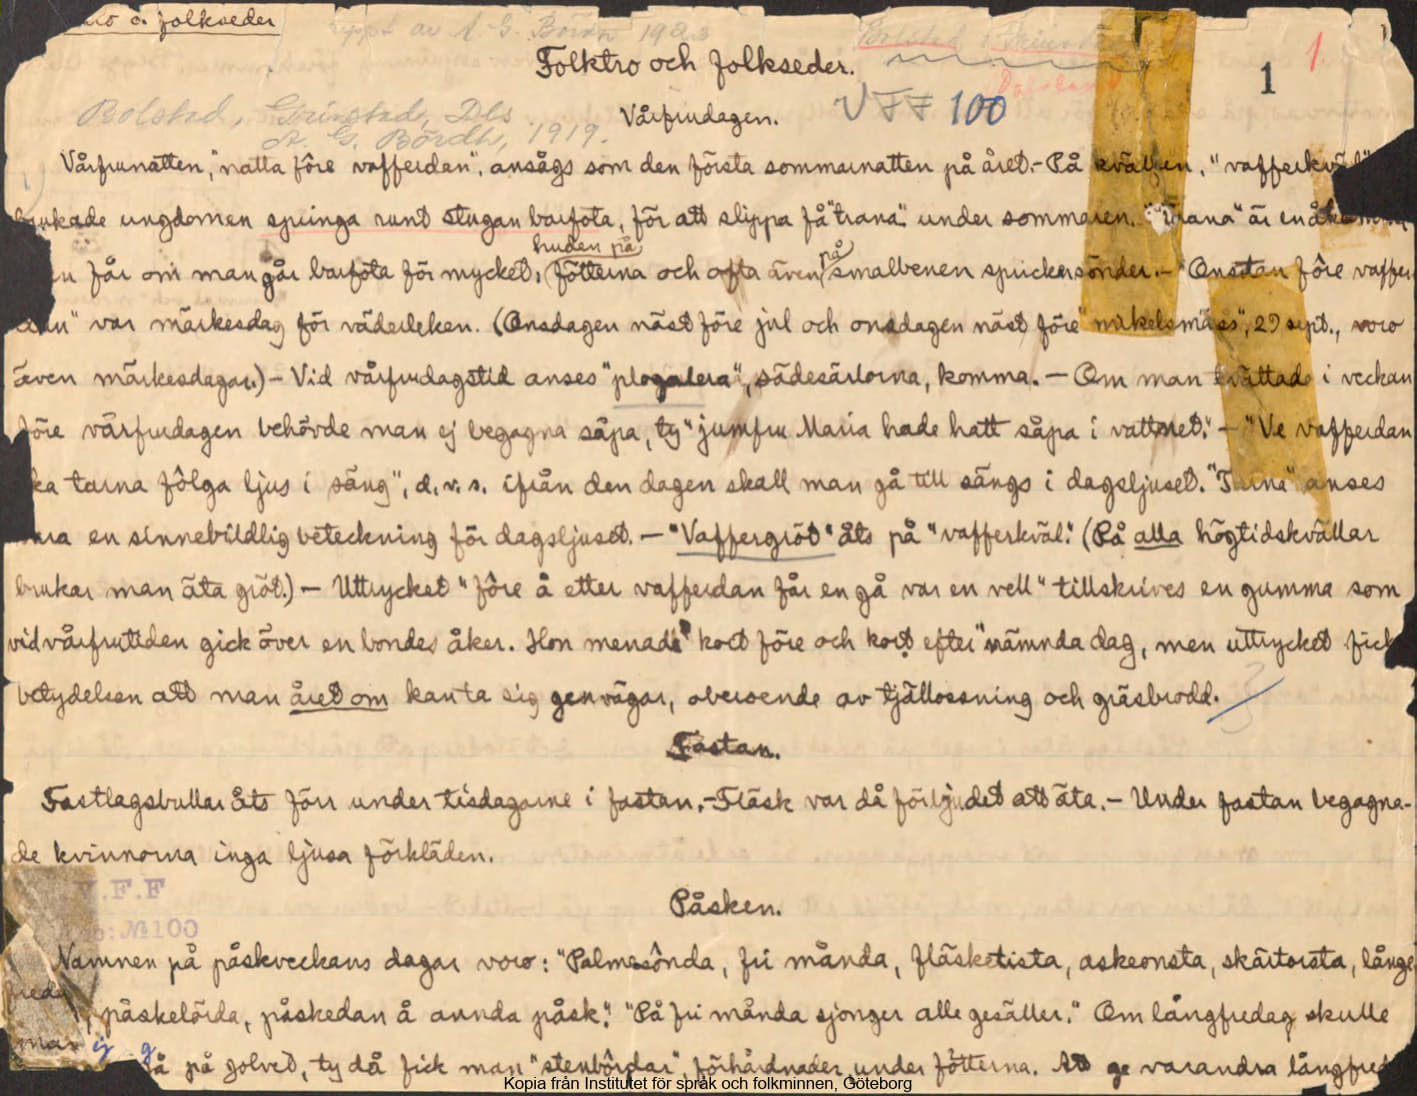 o. folkseder
uppt av A. G. Bördh 1923
Bolstad, Grinstad
Dalsland
1.
1
Folktro och folkseder.
Bolstad, Grinstad, Dls
A. G. Bördh, 1919.
VFF 100
Vårfrudagen.
Vårfrunatten, "natta fôre vafferdan", ansågs som den första sommarnatten på året.- På kvällen, "vafferkväl"
brukade ungdomen springa runt stugan barfota, för att slippa få "trana" under sommaren. "Trana" är en åkomma
en får om man går barfota för mycket; huden på fötterna och ofta även på smalbenen spricker sönder.- "Onsdan fôre vaffer-
dan" var märkesdag för väderleken. (Onsdagen näst före jul och onsdagen näst före "mikelsmäss", 29 sept., voro
även märkesdagar.) - Vid vårfrudagstid anses "plogalera", sädesärlorna, komma. - Om man tvättade i veckan
före vårfrudagen behövde man ej begagna såpa, ty "jumfru Maria hade hatt såpa i vattnet." - "Ve vafferdan
ska tarna fôlga ljus i säng", d.v.s. ifrån den dagen skall man gå till sängs i dagsljuset. "Tarna" anses
vara en sinnebildlig beteckning för dagsljuset. - "Vaffergröt" åts på "vafferkväl". (På alla högtidskvällar
brukar man äta gröt.) - Uttrycket "fôre å etter vafferdan får en gå var en vell" tillskrives en gumma som
vid vårfrutiden gick över en bondes åker. Hon menade "kort före och kort efter" nämnda dag, men uttrycket fick
betydelsen att man året om kan ta sig genvägar, oberoende av tjällossning och gräsbrodd.
Fastan.
Fastlagsbullar åts förr under tisdagarne i fastan.- Fläsk var då förbjudet att äta. - Under fastan begagna-
de kvinnorna inga ljusa förkläden.
V.F.F
Acc: № 100
Påsken.
Namnen på påskveckans dagar voro: "Palmesônda, fri månda, fläsketista, askeonsta, skärtorsta, långe
freda, påskelörda, påskedan å annda påsk". "På fri månda sjonger alle gesäller." Om långfredag skulle
man ej gå på golvet, ty då fick man "stenbôrdar", förhårdnader under fötterna. Att ge varandra långfred
Kopia från Institutet för språk och folkminnen, Göteborg